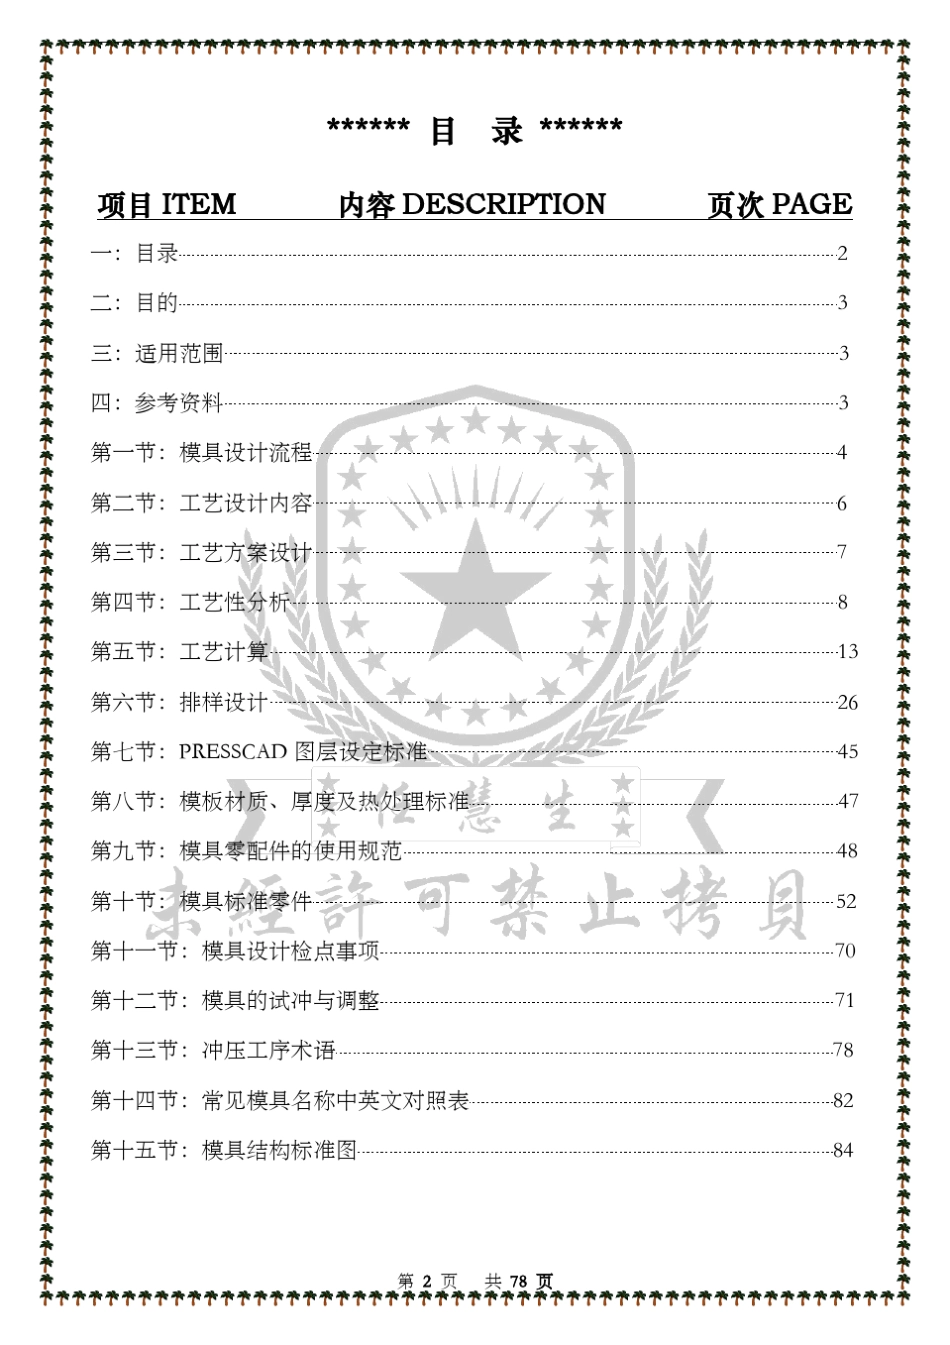 ****** 目 录 ******
项目 ITEM 内容 DESCRIPTION 页次 PAGE
一：目录 2
二：目的 3
三：适用范围 3
四：参考资料 3
第一节：模具设计流程 4
第二节：工艺设计内容 6
第三节：工艺方案设计 7
第四节：工艺性分析 8
第五节：工艺计算 13
第六节：排样设计 26
第七节：PRESSCAD 图层设定标准 45
第八节：模板材质、厚度及热处理标准 47
任慧生
第九节：模具零配件的使用规范 48
第十节：模具标准零件 52
未經許可禁止拷貝
第十一节：模具设计检点事项 70
第十二节：模具的试冲与调整 71
第十三节：冲压工序术语 78
第十四节：常见模具名称中英文对照表 82
第十五节：模具结构标准图 84
第 2 页 共 78 页